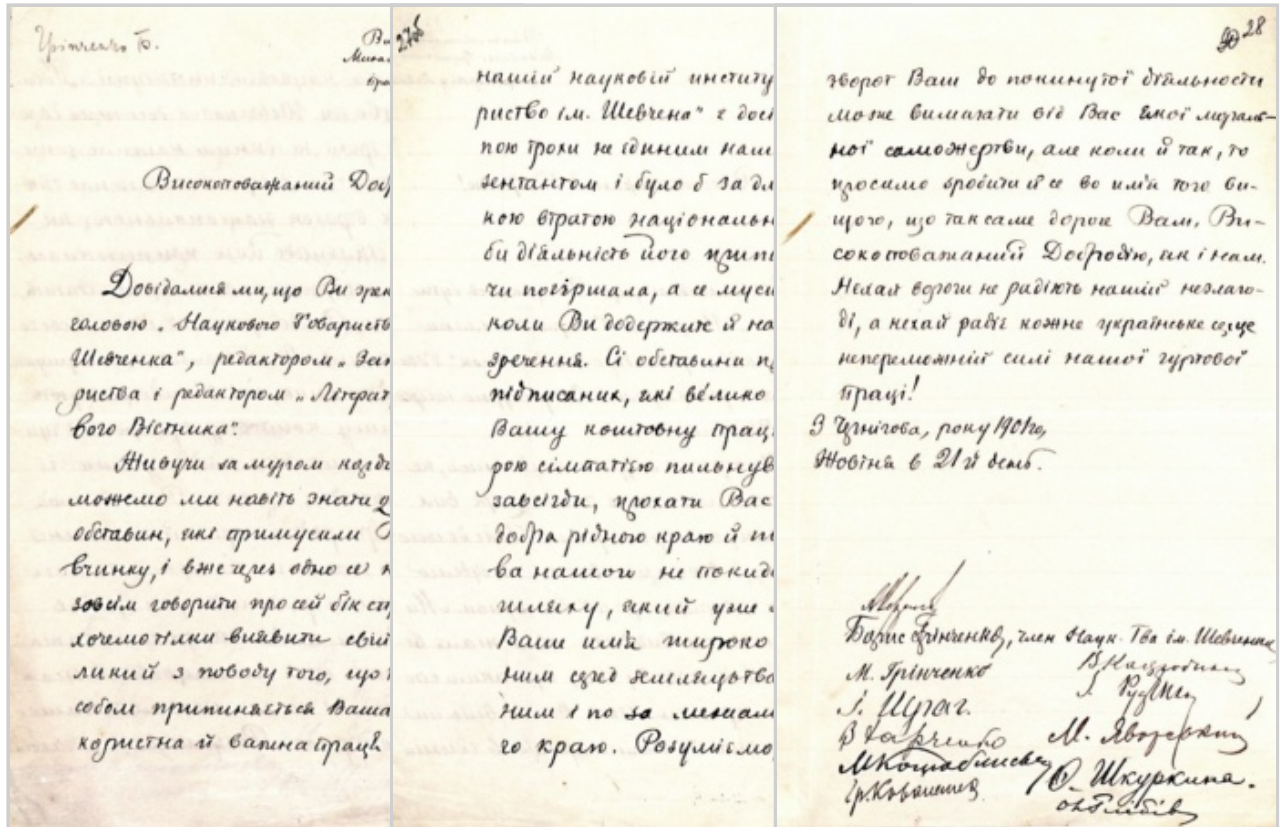 Грінченко Б.
Ви
Високоповажаний Доб
Довідалися ми, що Ви зрек
головою „Наукового Товариств
Шевченка", редактором „Зап
риства і редактором „Літерат
вого Вістника".
Живучи за муром кордо
можемо ми навіть знати
обставин, які примусили
вчинку, і вже через одно се
зовсім говорити про сей бік сп
хочемо тілки виявити свій
ликий з поводу того, що
собом припиняється Ваша
користна й важна праця.
27об
нашій науковій институ
риство ім. Шевченка" є дос
пою троки не єдиним наш
зентантом і було б за дл
кою втратою національн
би діяльність його припи
чи погіршала, а се муси
коли Ви додержите й на
зречення. Сі обставини п
підписаних, які велико
Вашу коштовну прац
рою сімпатією пильнув
завсігди, прохати Вас
добра рідного краю й п
ва нашого не покид
шляху, який уже
Ваше имя широко
ним серед земляцтва
ним і по за межам
го краю. Розуміємо
28
зворот Ваш до покинутої діяльности
може вимагати від Вас якої мораль-
ної саможертви, але коли й так, то
просимо зробити й се во имя того ви-
щого, що так саме дороге Вам, Ви-
сокоповажаний Добродію, як і нам.
Нехай вороги не радіють нашій незлаго-
ді, а нехай радіє кожне українське серце
непереможній силі нашої гуртової
праці!
З Чернігова, року 1901го,
Жовтня в 21й день.
Борис Грінченко, член Наук. Тва ім. Шевченка
М. Грінченко
І. Шраг.
М. Яворський
М Коцюбинський
О. Шкуркина.
Гр. Коваленко